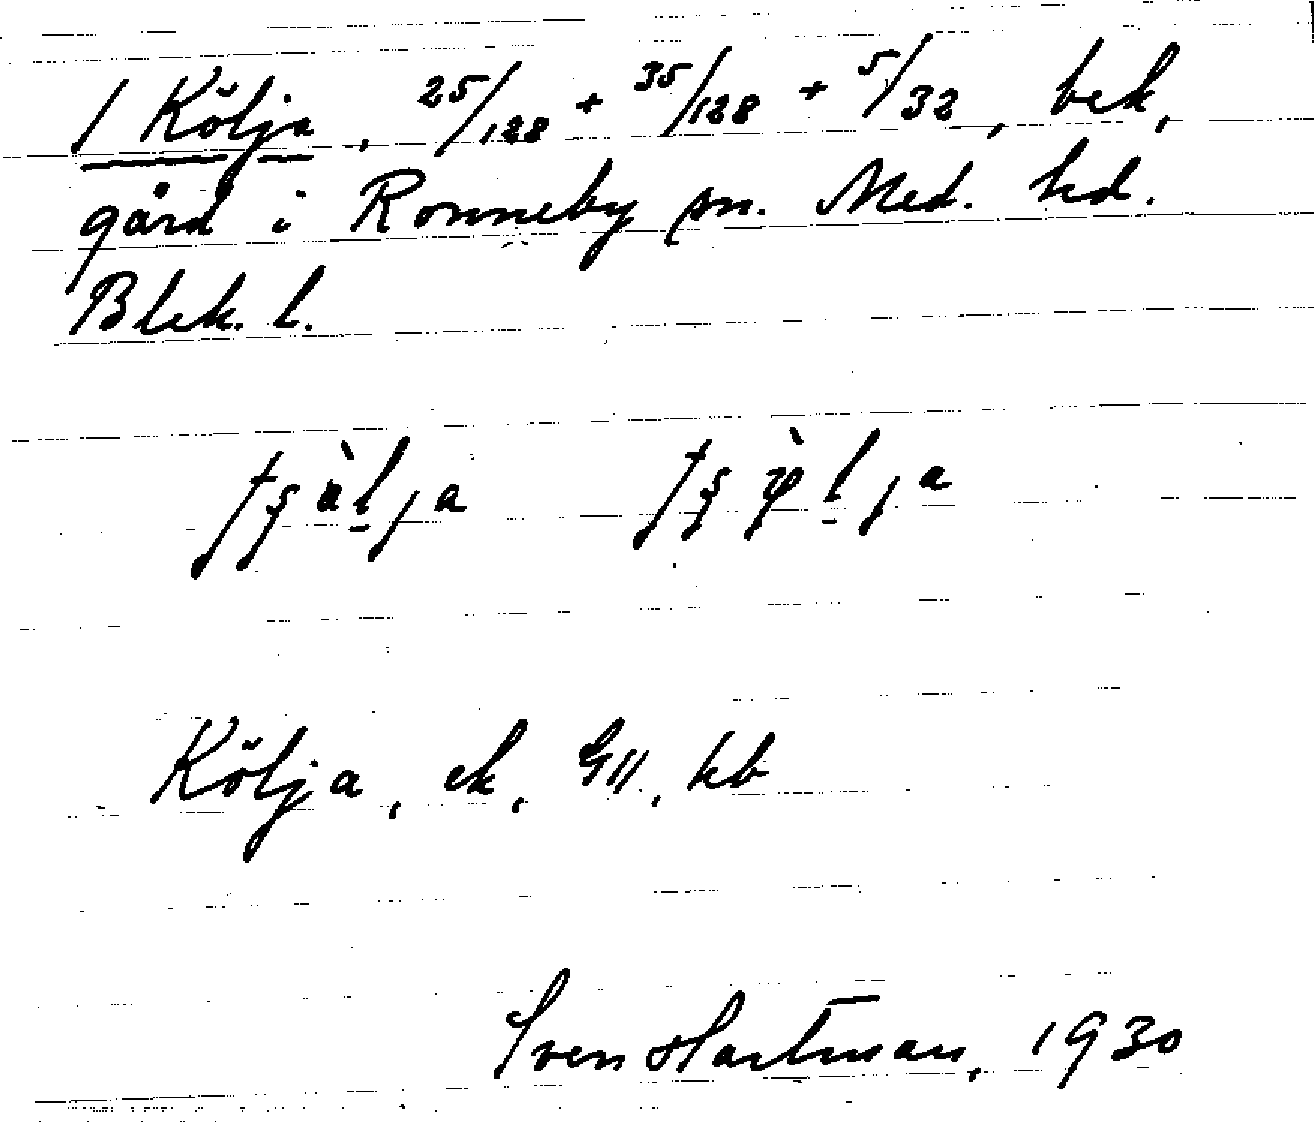 1 Kölja, 25/128 + 35/128 + 5/32, bek,
gård i Ronneby sn. Med. hd.
Blek. l.
Kölja, ek, GII, kb
Sven Hartman, 1930